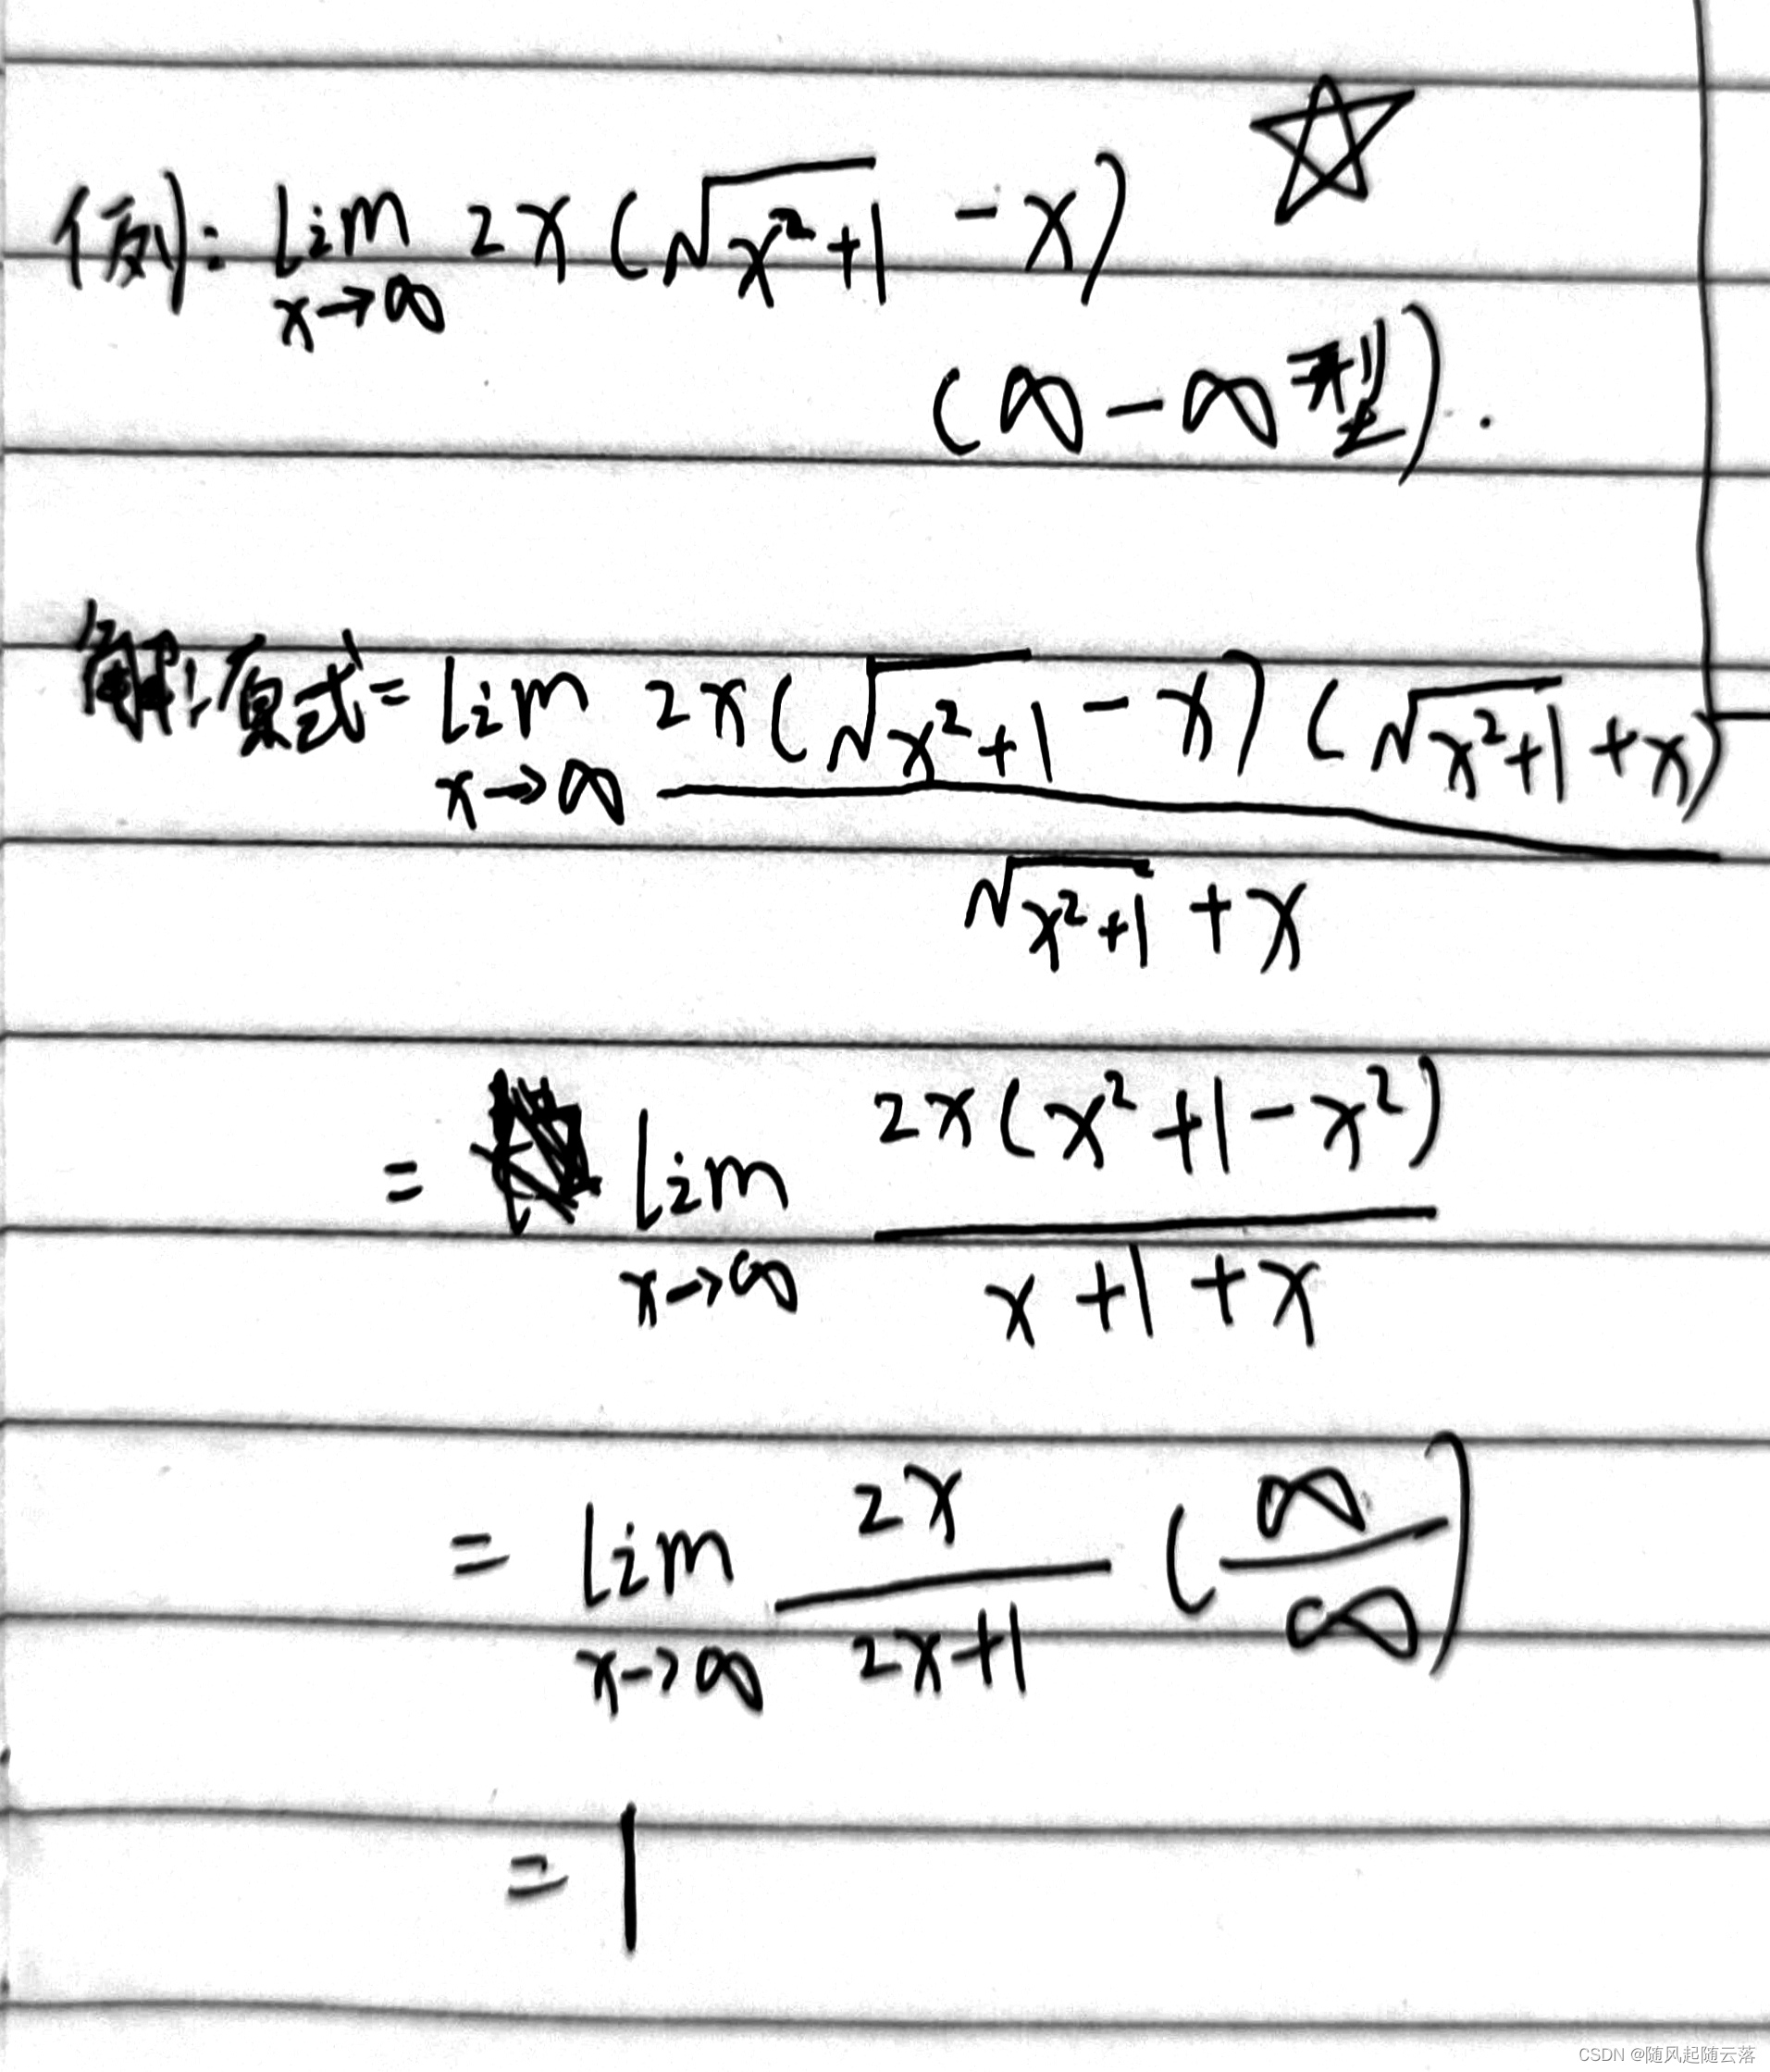 例: lim 2x(√(x²+1) - x)
x→∞
(∞-∞型).
解: 原式= lim 2x(√(x²+1) - x)(√(x²+1) + x)
x→∞
√(x²+1) + x
= lim 2x(x²+1-x²)
x→∞ x+1+x
= lim 2x (∞/∞)
x→∞ 2x+1
= 1
CSDN @随风起随云落